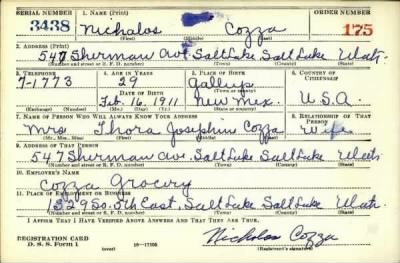 SERIAL NUMBER 1. NAME (Print) ORDER NUMBER
3438 Nicholas Cozza 175
(First) (Middle) (Last)
2. ADDRESS (Print)
547 Sherman Ave. Salt Lake Salt Lake Utah
(Number and street or R. F. D. number) (Town) (County) (State)
3. TELEPHONE 4. AGE IN YEARS 5. PLACE OF BIRTH 6. COUNTRY OF CITIZENSHIP
7-1773 29 Gallup
DATE OF BIRTH (Town or county)
Feb. 16 1911 New Mex. U.S.A.
(Exchange) (Number) (Mo.) (Day) (Yr.) (State or country)
7. NAME OF PERSON WHO WILL ALWAYS KNOW YOUR ADDRESS 8. RELATIONSHIP OF THAT PERSON
Mrs Thora Josephine Cozza Wife
(Mr., Mrs., Miss) (First) (Middle) (Last)
9. ADDRESS OF THAT PERSON
547 Sherman Ave. Salt Lake Salt Lake Utah
(Number and street or R. F. D. number) (Town) (County) (State)
10. EMPLOYER'S NAME
Cozza Grocery
11. PLACE OF EMPLOYMENT OR BUSINESS
1329 So. 5th East, Salt Lake Salt Lake Utah.
(Number and street or R. F. D. number) (Town) (County) (State)
I AFFIRM THAT I HAVE VERIFIED ABOVE ANSWERS AND THAT THEY ARE TRUE.
REGISTRATION CARD
D. S. S. Form 1 (over) Nicholas Cozza
(Registrant's signature)